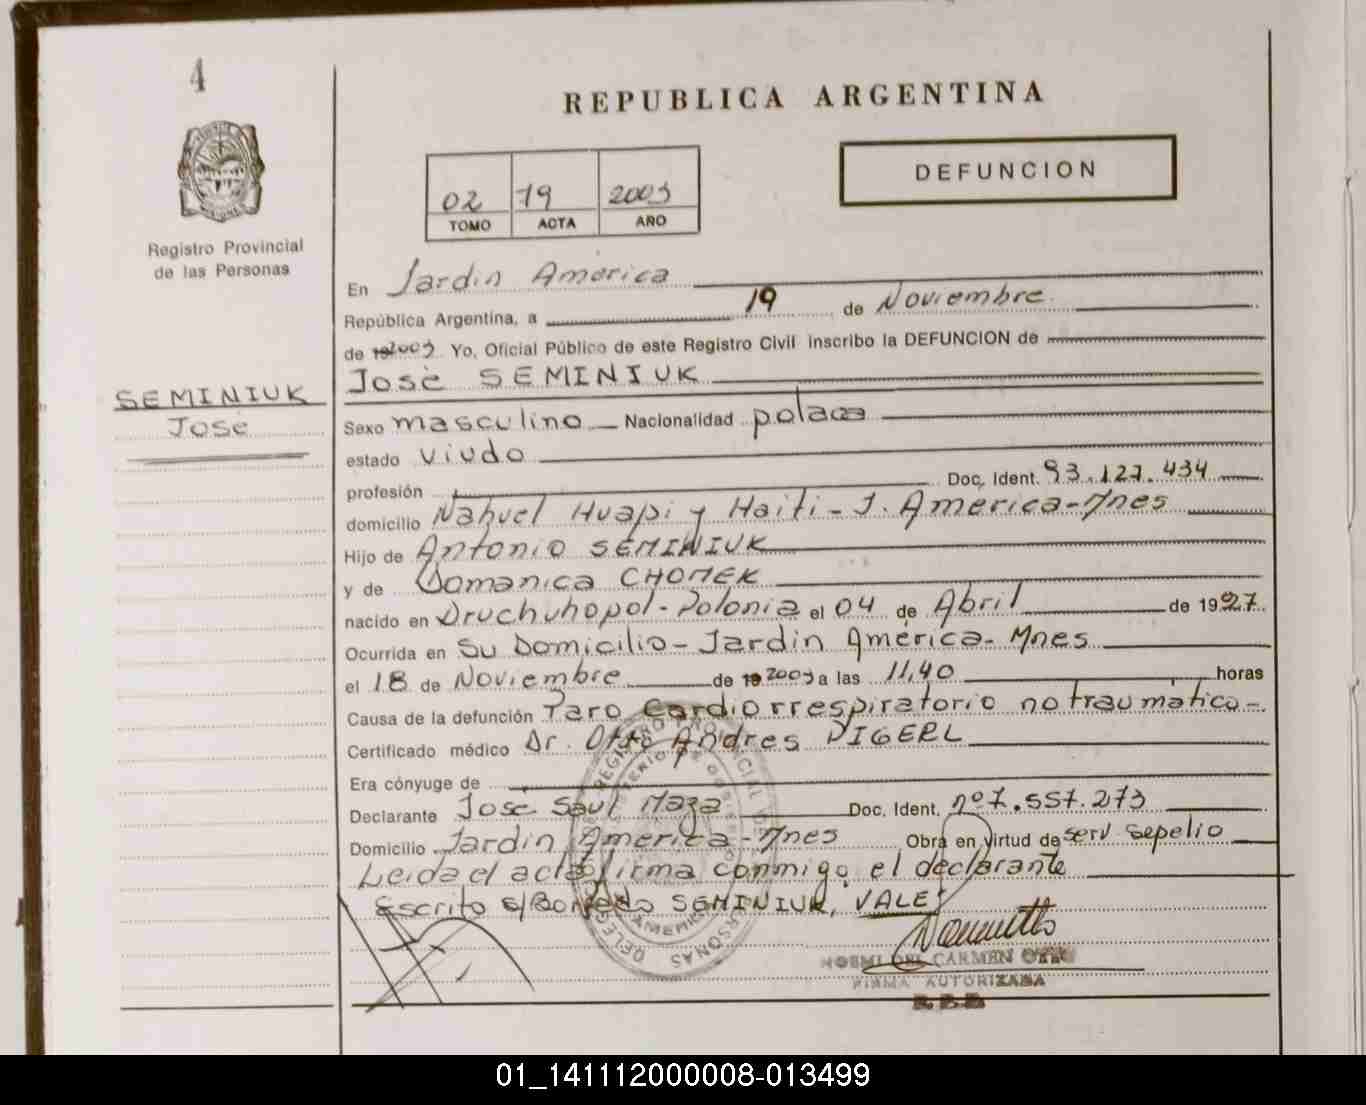 4
REPUBLICA ARGENTINA
02 19 2003
TOMO ACTA AÑO
DEFUNCION
Registro Provincial
de las Personas
En Jardin América
República Argentina, a 19 de Noviembre
de 2003 Yo, Oficial Público de este Registro Civil inscribo la DEFUNCION de
José SEMINIUK
SEMINIUK
José
Sexo masculino Nacionalidad polaca
estado viudo
profesión Doc. Ident. 93.127.434
domicilio Nahuel Huapi y Haiti - J. América - Mnes
Hijo de Antonio SEMINIUK
y de Domanica CHOMEK
nacido en Druchuhopol - Polonia el 04 de Abril de 1927
Ocurrida en Su Domicilio - Jardin América - Mnes
el 18 de Noviembre de 2003 a las 11,40 horas
Causa de la defunción Paro Cardiorrespiratorio no traumático -
Certificado médico Dr. Otto Andres PIGERL
Era cónyuge de
Declarante José Saul Maza Doc. Ident. nº 7.557.273
Domicilio Jardin América - Mnes Obra en virtud de serv sepelio
Leida el acta firma conmigo el declarante
Escrito s/Borrado SEMINIUK, VALE
NOEMI DEL CARMEN
FIRMA AUTORIZADA
01_141112000008-013499